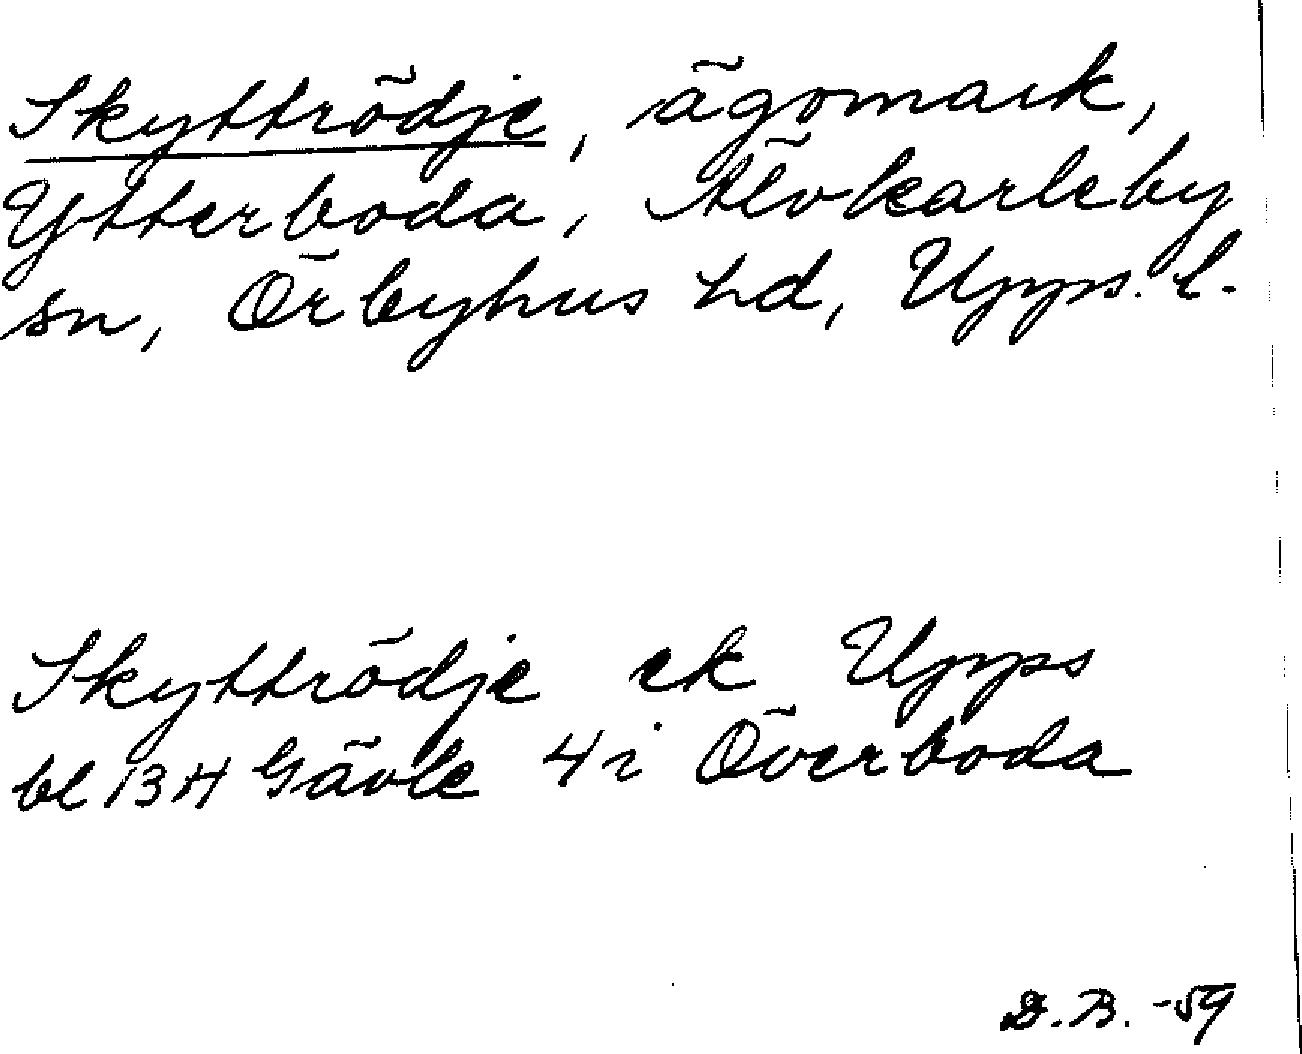 Skyttrödje, ägomark,
Ytterboda, Älvkarleby
sn, Örbyhus hd, Upps. l.
Skyttrödje ek Upps
bl 13H Gävle 4i Överboda
D.B. -59